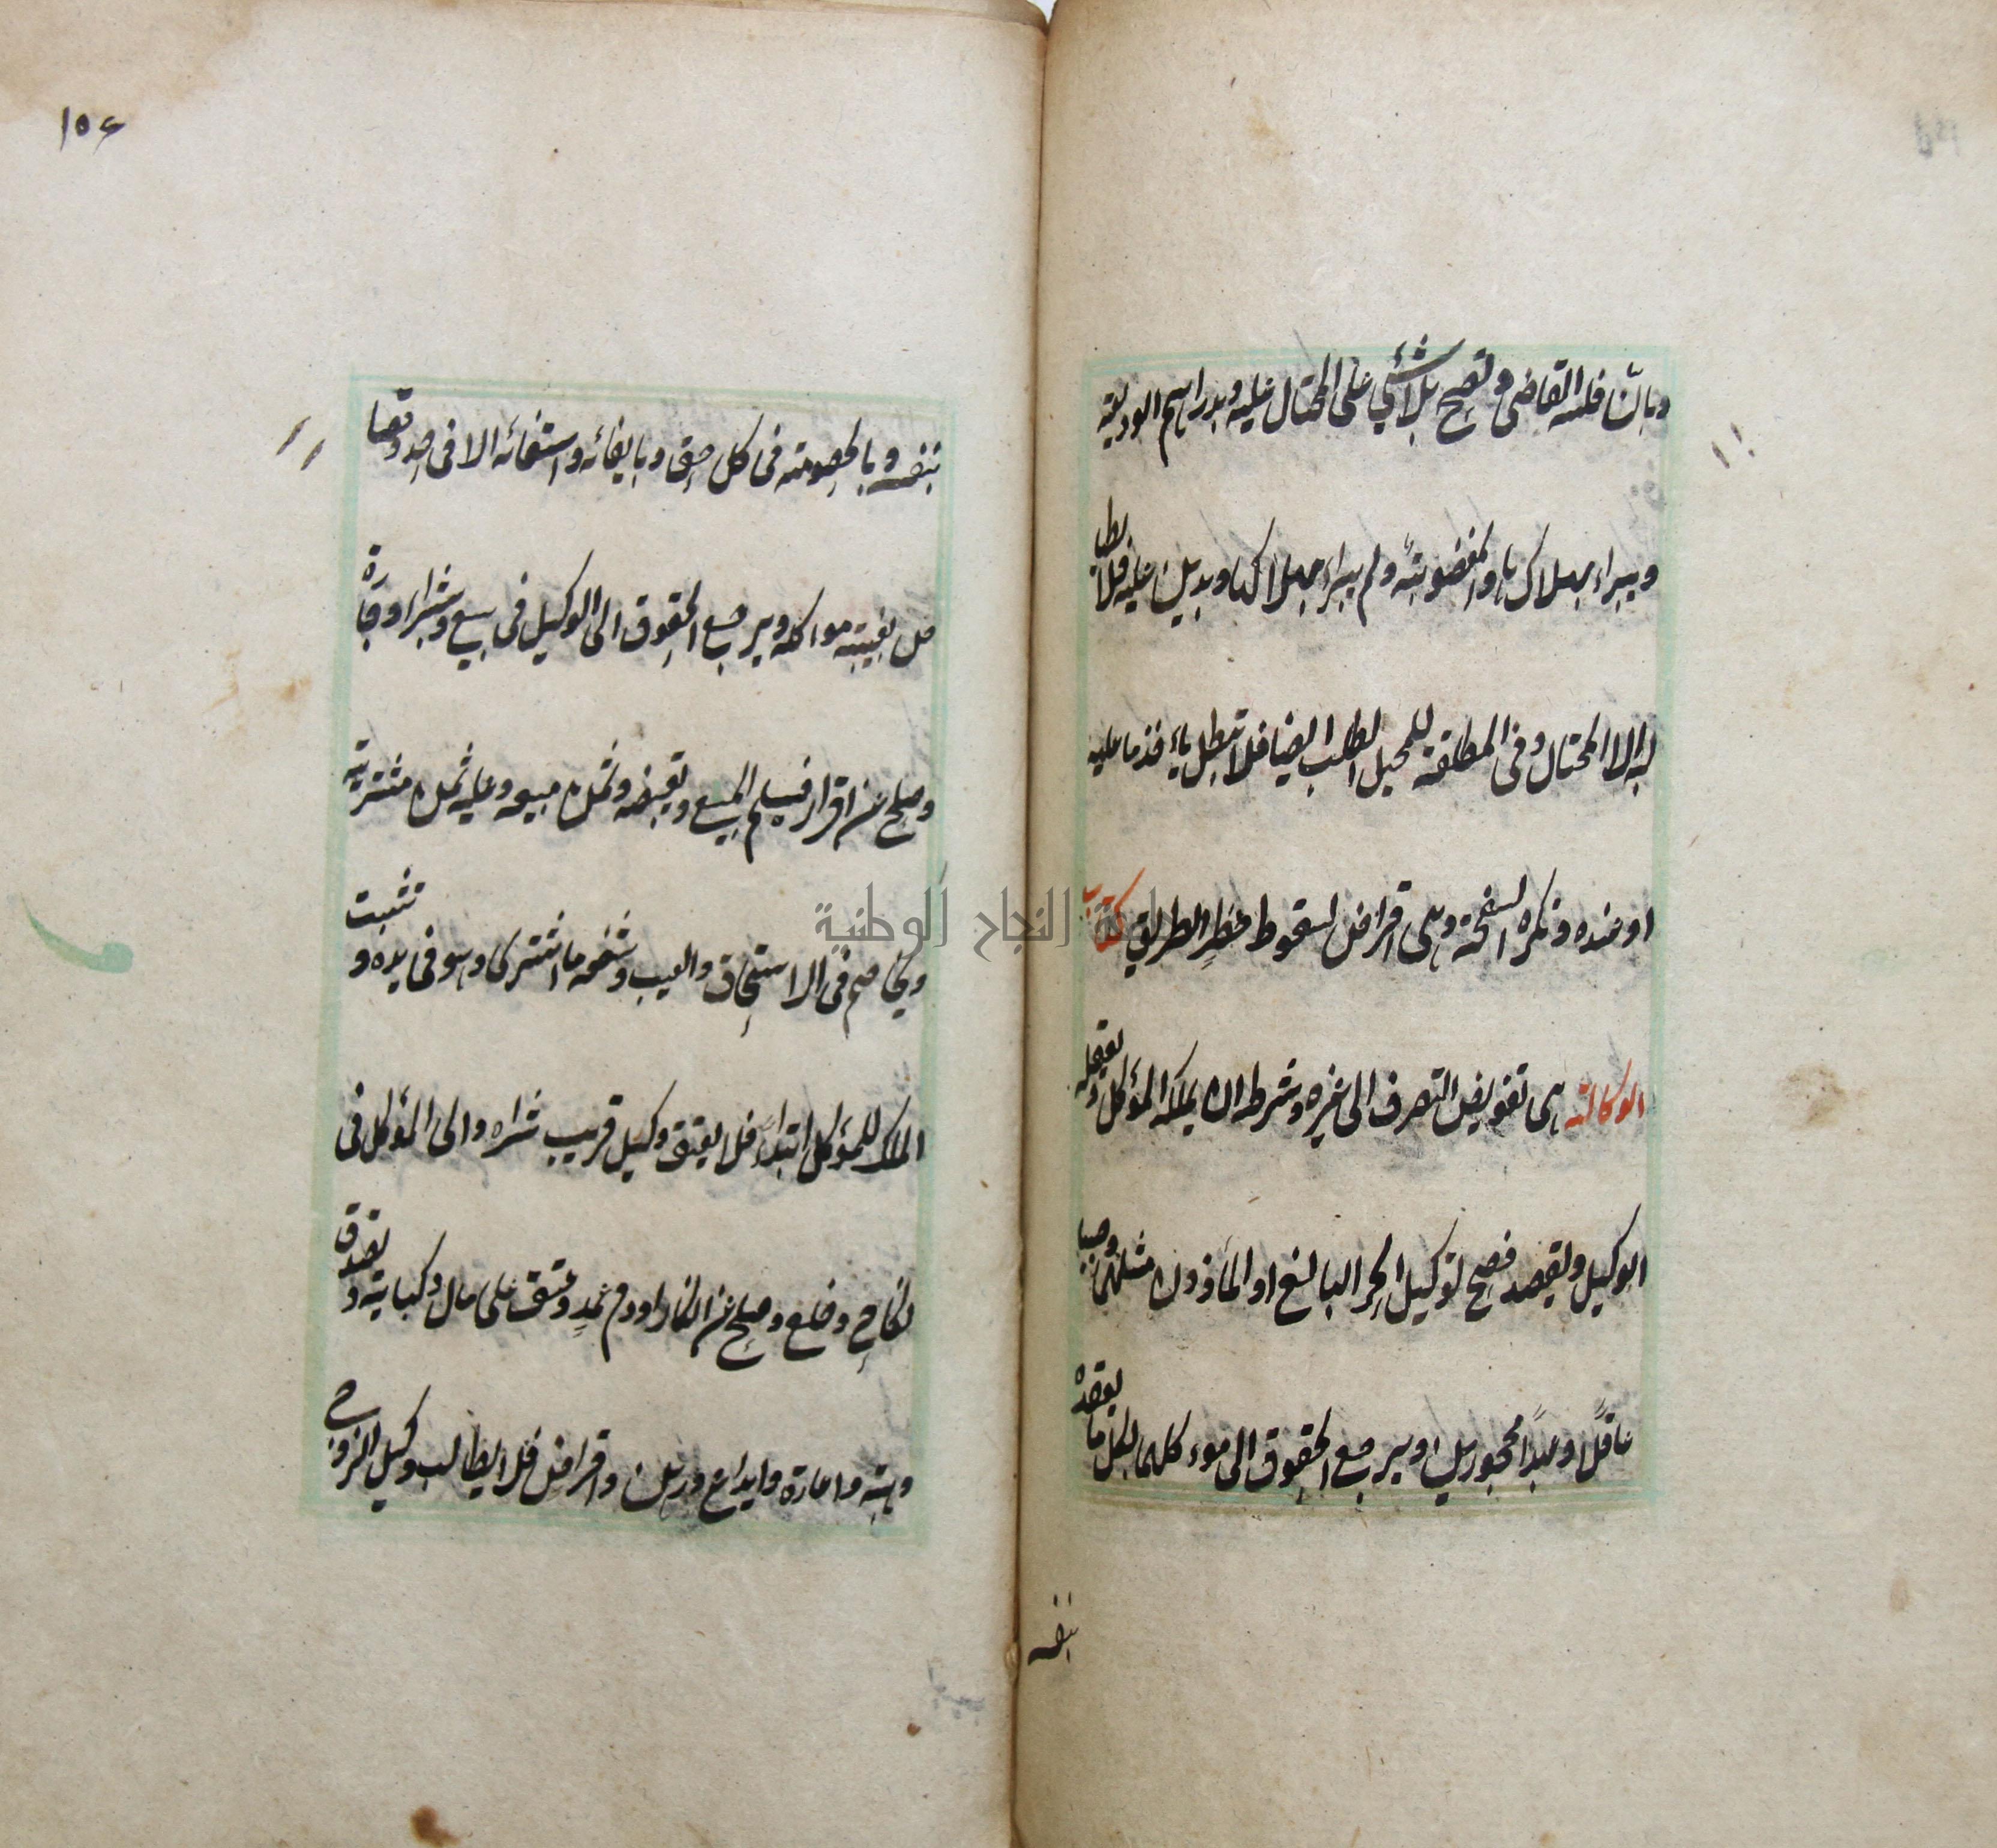 وبان فلسه القاضى وتصح بلا شئي على المحتال عليه وبدراهم الوديعة
ويبراء بهلاكها والمغضوبة ولم يبراء بهلاكها وبدين عليه فلا يطا
لبه الا المحتال وفى المطلقة للمحيل الطلب ايضا فلا تبطل باخذ ما عليه
او عنده وتكره السفتجة وهى اقراض لسقوط خطر الطريق كتاب
الوكالة هى تفويض التصرف الى غيره وشرطه ان يملكه المؤكل ويعقله
الوكيل ويقصد فصح توكيل الحر البالغ او المأذون مثلهما وصبيا
عاقلا وعبدا محجورين ويرجع الحقوق الى موءكلهما بكل ما يعقده
بنفسه
١٥٤
بنفسه وبالخصومة فى كل حق وبايفائه واستيفائه الا فى حد وقصا
ص بغيبة مواكله ويرجع الحقوق الى الوكيل فى بيع وشراء واجارة
وصلح عن اقرار فيسلم المبيع ويقبضه وثمن مبيعه وعليه ثمن مشتريه
ويخاصم فى الاستحقاق والعيب وشفعه ما اشترى وهو فى يده وتثبت
الملك للمؤكل ابتداء فلا يعتق وكيل قريب شراه والى المؤكل فى
نكاح وخلع وصلح عن انكار او دم عمد وعتق على مال وكتابة وتصدق
وهبة واعارة وايداع ورهن واقراض فلا يطالب وكيل الزوج